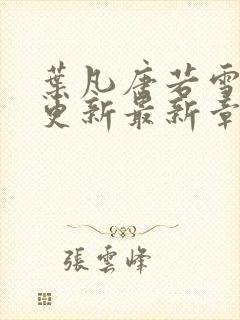 葉凡唐若雪
更新最新章
張雲峰